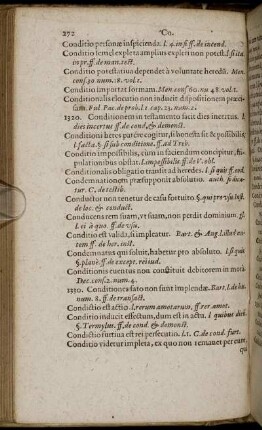 272 Co.
Conditio personæ inspicienda. l. 4. in fi ff. de incend.
Conditio semel expleta amplius expleri non potest. l. si ita
in pr. ff. de man. test.
Conditio potestatiua dependet à voluntate heredis. Men.
cons. 30. num. 18. vol. 1.
Conditio importat formam. Men. cons. 60. nu 48. vol. 1.
Conditionalis elocutio non inducit dispositionem præci-
1320. Conditionem in testamento facit dies incertus. l.
dies incertus ff. de cond. & demonst.
Conditioni heres parere cogitur, si honesta sit & possibilis
l. facta. § si sub conditione. ff. ad Treb.
Conditio impossibilis, cum in faciendum concipitur, sti-
pulationibus obstat. l. impossibilis. ff. de V. obl.
Conditionalis obligatio transit ad heredes. l. si quis ff. cod.
Condemnationem præsupponit absolutio. auth. si dica-
tur. C. de testib.
Conductor non tenetur de casu fortuito.
de loc. & conduct.
Conducens rem suam, vt suam, non perdit dominium
Conditio est valida, si impleatur. Bart. & Ang.
tem ff. de her. inst.
Condemnatus qui soluit, habetur pro absoluto.
ff. de except. rei iud.
Conditionis euentus non constituit debitorem in mora
Dec. cons. 2. num. 4.
1330. Conditiones facto non sunt implendæ. Bart. l.
num. 8. ff. de transact.
Condictio est actio. l. rerum amotarum, ff. rer. amot.
Conditio inducit effectum, dum est in actu. l. quibus dieb.
§. Termylius. ff. de cond. & demonst.
Condictio furtiua est rei persecutio. l. 1. C. de cond. furt.
Conditio videtur impleta, ex quo non remanet per eum